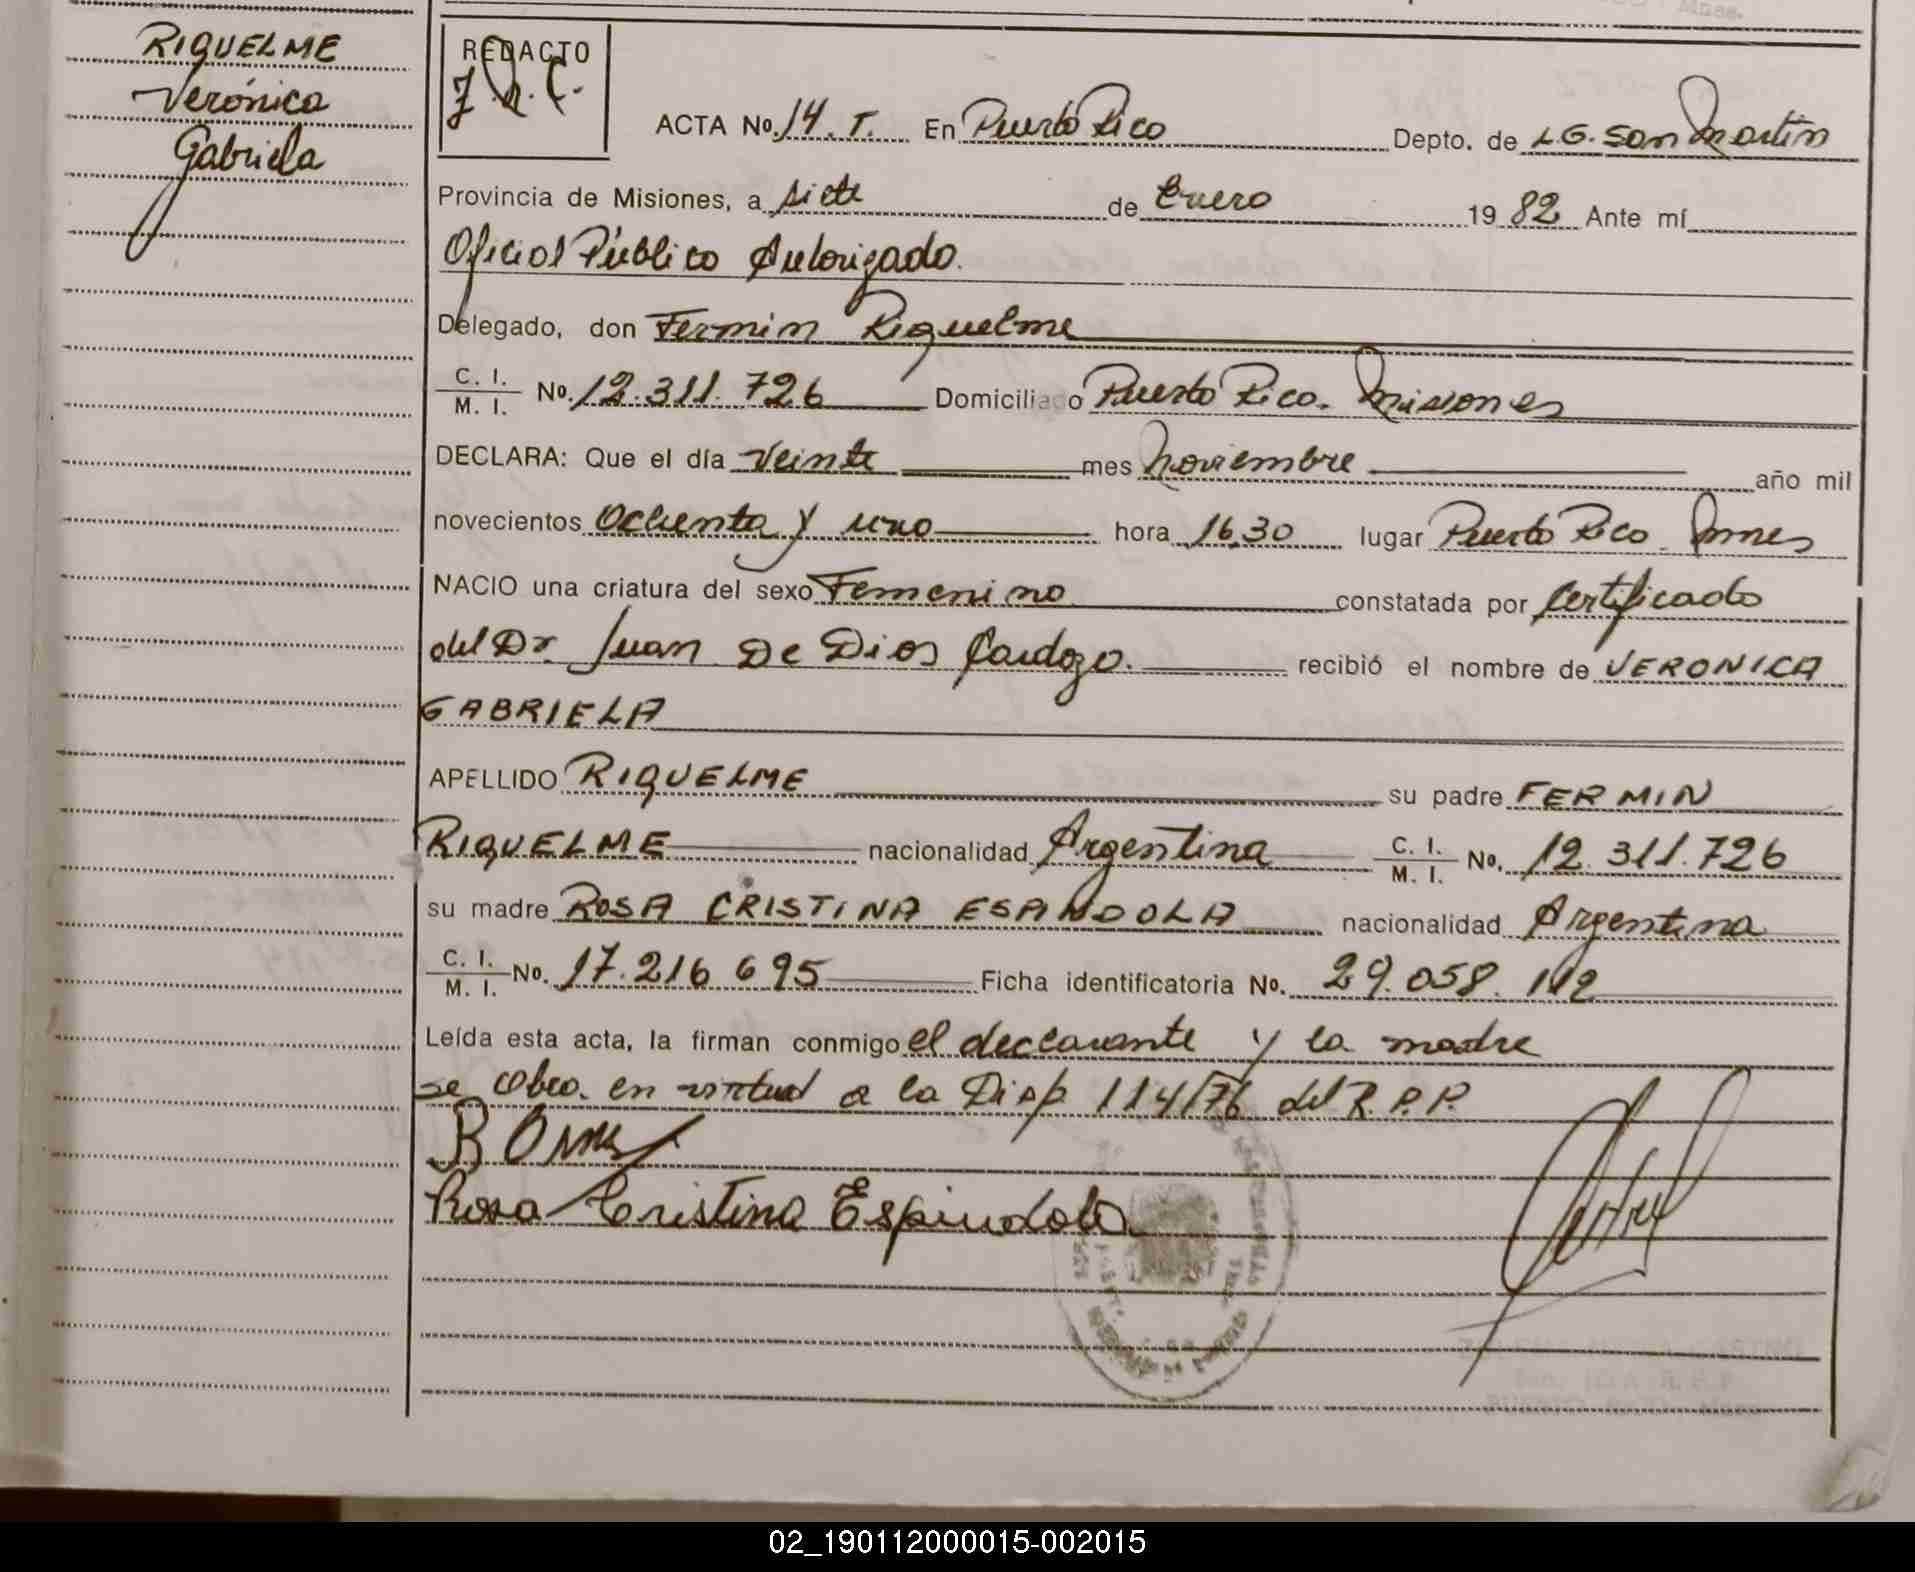 RIQUELME
Verónica
Gabriela
REDACTO
ACTA No. 14. T. En Puerto Rico Depto. de L.G. San Martín
Provincia de Misiones, a siete de Enero 1982 Ante mí
Oficial Público Autorizado.
Delegado, don Fermin Riquelme
C. I.
M. I. No. 12.311.726 Domiciliado Puerto Rico. Misiones
DECLARA: Que el día Veinte mes Noviembre año mil
novecientos Ochenta y uno hora 16,30 lugar Puerto Rico. Mnes
NACIO una criatura del sexo Femenino constatada por Certificado
del Dr. Juan De Dios Cardozo. recibió el nombre de VERONICA
GABRIELA
APELLIDO RIQUELME su padre FERMIN
RIQUELME nacionalidad Argentina C. I. M. I. No. 12.311.726
su madre ROSA CRISTINA ESPINDOLA nacionalidad Argentina
C. I. M. I. No. 17.216.695 Ficha identificatoria No. 29.058.112
Leída esta acta, la firman conmigo el declarante y la madre
se labró en virtud a la Disp. 114/76 del R.P.P.
Rosa Cristina Espindola
02_190112000015-002015